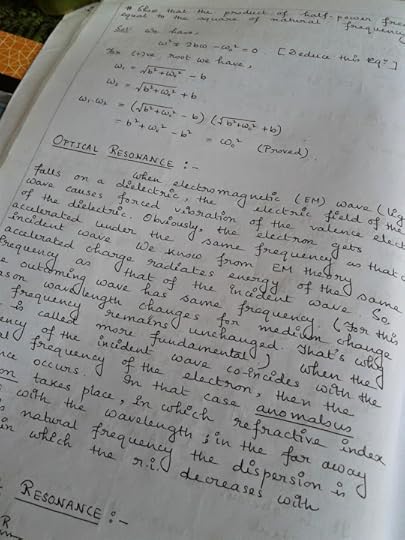 # Show that the product of half-power fre
equal to the square of natural frequency
Sol: We have,
ω² ± 2bω - ω₀² = 0 [Deduce this eqⁿ]
For (+)ve root we have,
ω₁ = √b²+ω₀² - b
ω₂ = √b²+ω₀² + b
ω₁ω₂ = (√b²+ω₀² - b) (√b²+ω₀² + b)
= b²+ω₀² - b² = ω₀² (Proved)
OPTICAL RESONANCE :-
When electromagnetic (EM) wave (lig
falls on a dielectric, the electric field of the
wave causes forced vibration of the valence elect
of the dielectric. Obviously, the electron gets
accelerated under the same frequency as that o
incident wave. We know from EM theory
accelerated charge radiates energy of the same
frequency as that of the incident wave. So,
e outcoming wave has same frequency. (For this
ason wavelength changes for medium change
frequency remains unchanged. That's why
is called more fundamental) When the
ency of the incident wave coincides with the
al frequency of the electron, then the
nce occurs. In that case anomalous
on takes place, in which refractive index
with the wavelength; in the far away
natural frequency the dispersion is
in which the r.i. decreases with
RESONANCE :-
R